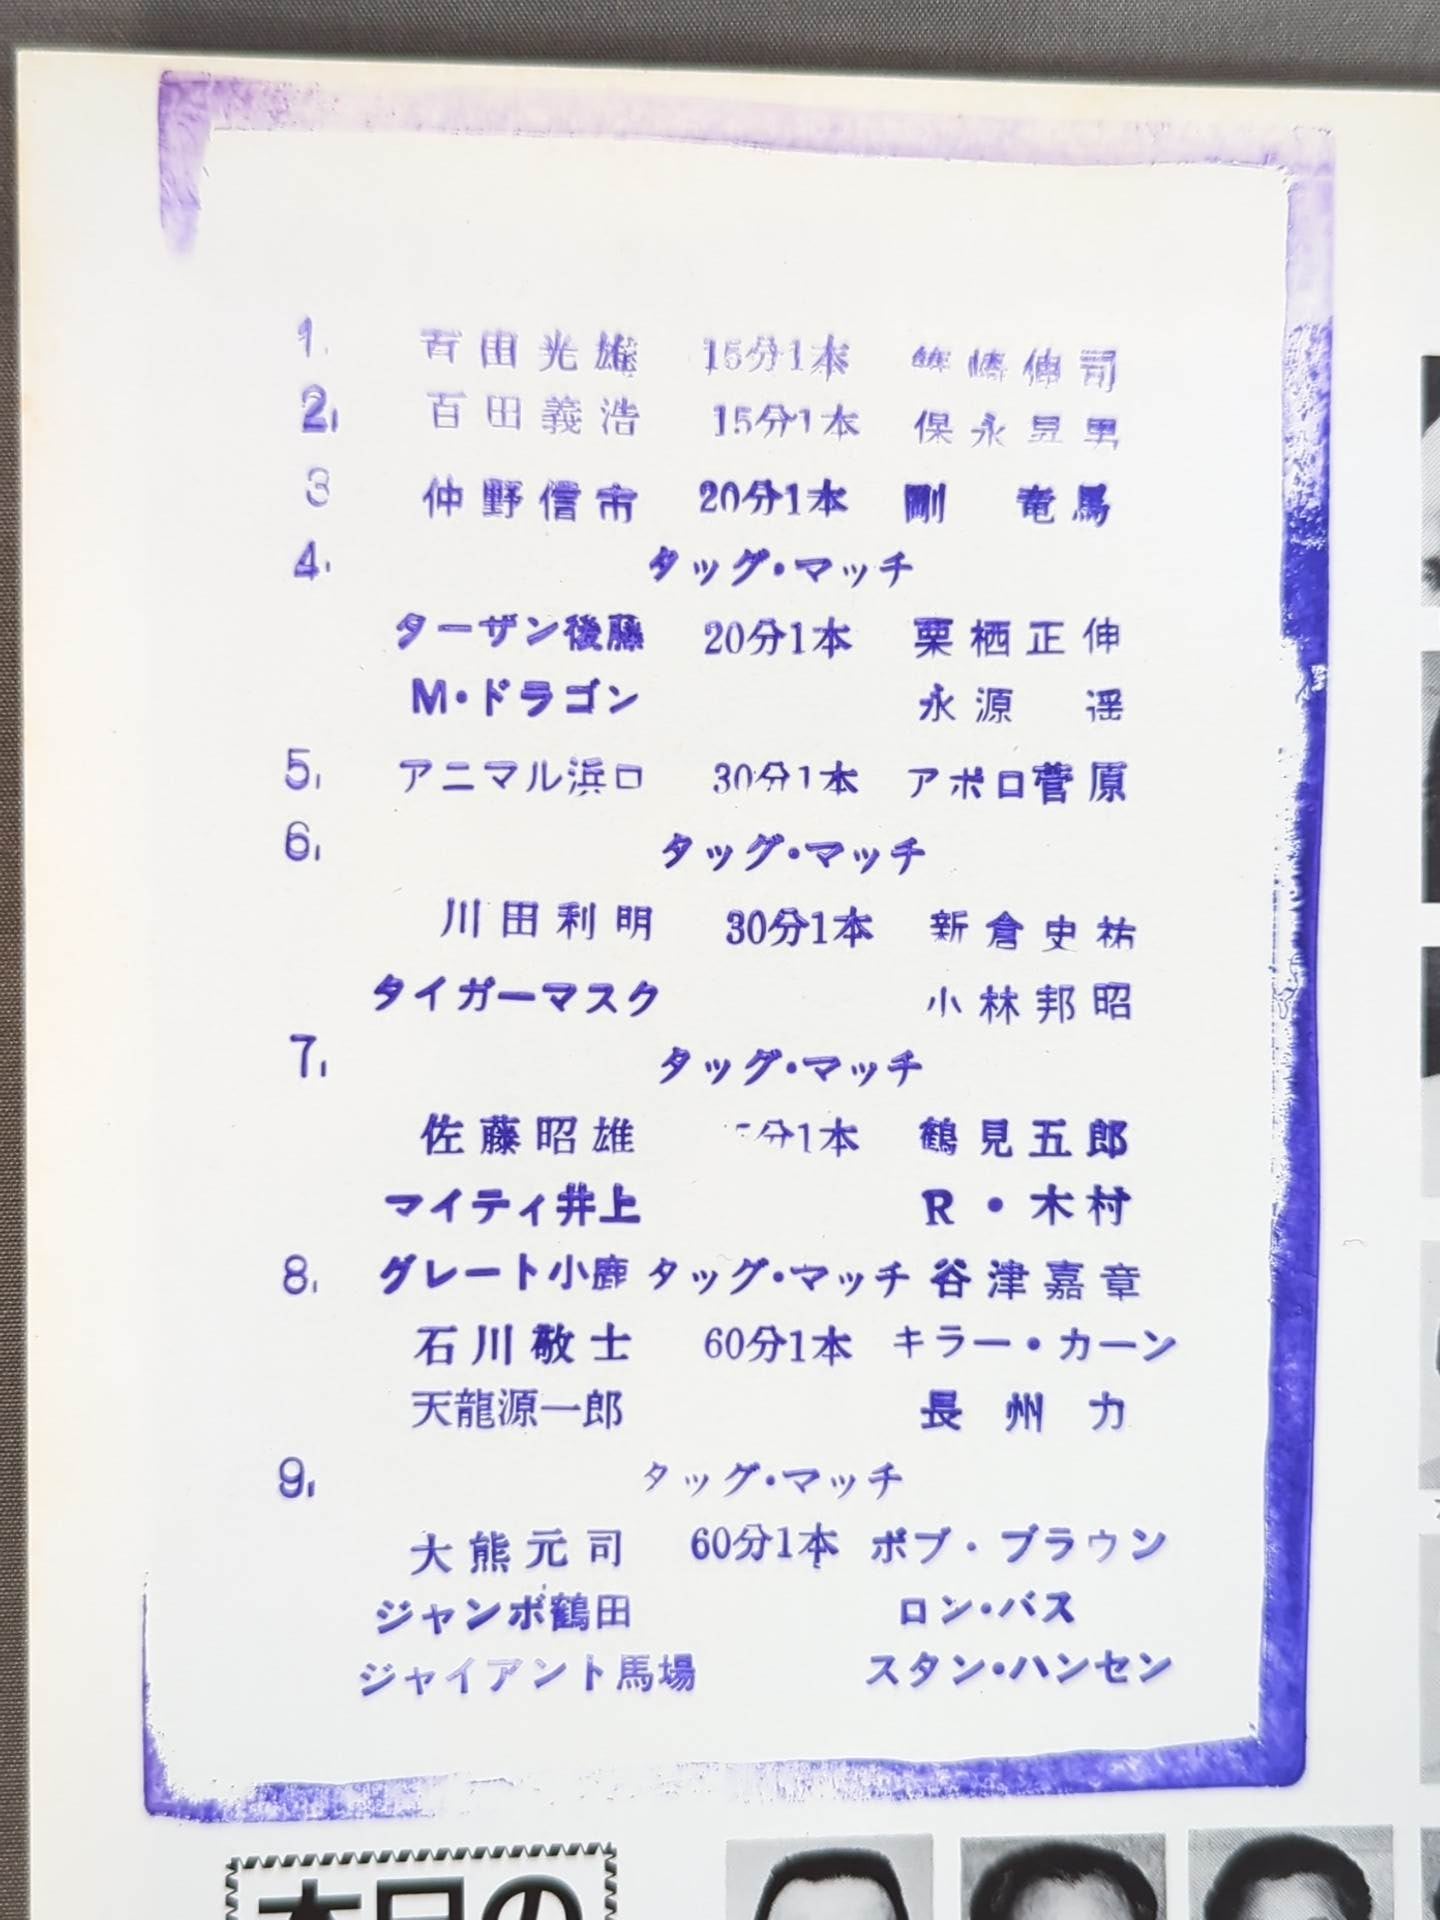 1. 百田光雄 15分1本 峰崎伸司
2. 百田義浩 15分1本 保永昇男
3 仲野信市 20分1本 剛 竜馬
4. タッグ・マッチ
ターザン後藤 20分1本 栗栖正伸
M・ドラゴン 永源 遥
5. アニマル浜口 30分1本 アポロ菅原
6. タッグ・マッチ
川田利明 30分1本 新倉史祐
タイガーマスク 小林邦昭
7. タッグ・マッチ
佐藤昭雄 5分1本 鶴見五郎
マイティ井上 R・木村
8. グレート小鹿 タッグ・マッチ 谷津嘉章
石川敬士 60分1本 キラー・カーン
天龍源一郎 長州力
9. タッグ・マッチ
大熊元司 60分1本 ボブ・ブラウン
ジャンボ鶴田 ロン・バス
ジャイアント馬場 スタン・ハンセン
本日の